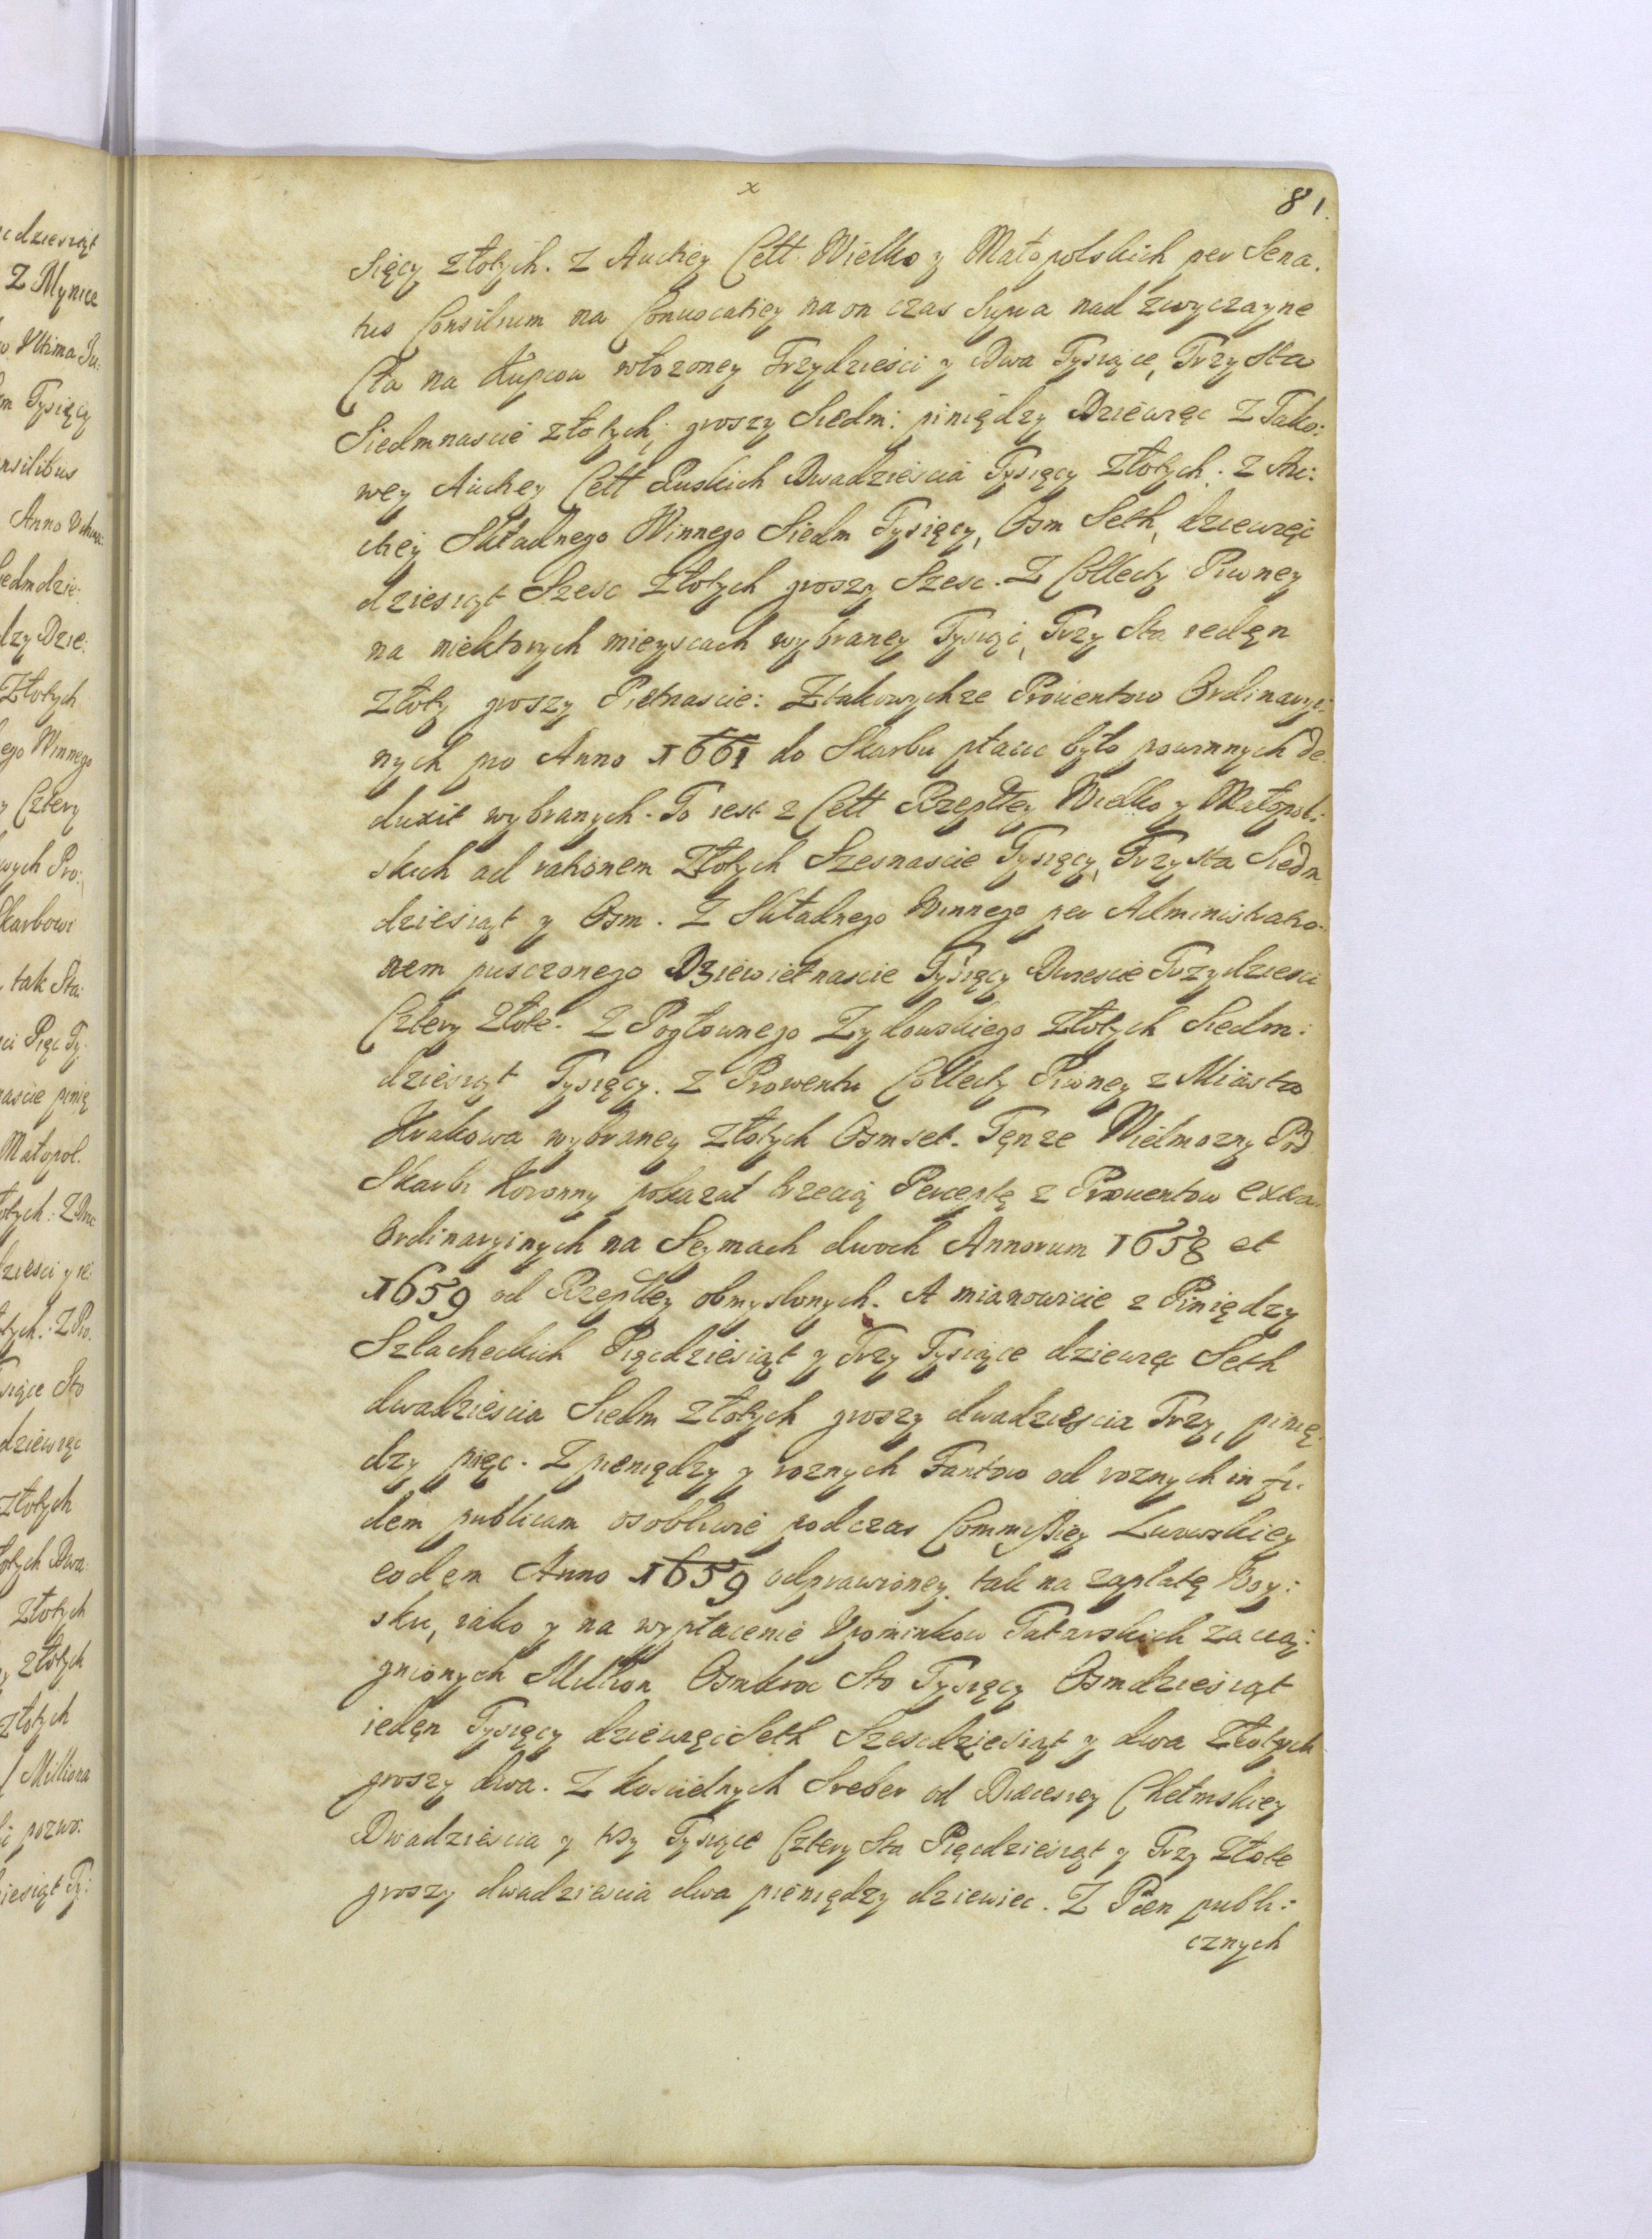 cdziesiąt
Z Mynice
w Ultima Ju:
m Tysięcy
nsilibus
Anno
Siedmdzie:
dzy Dzie:
Złotych
ego Winnego
y Cztery
wych Pro:
Skarbowi
tak Sta:
ci Pięc Ty:
naście pinię
Małopol.
złotych: Z
dziesci y ie:
złotych. Z Pro.
siące Sto
dziewięc
złotych
złotych Dwa:
złotych
y złotych
złotych
Milliona
pozwo:
dziesiąt Ty:
x
81.
sięcy złotych. Z Auckey Cell Wielko y Małopolskich per Sena.
tus Consilium na Conuocatiey na on czas supra nad zwyczayne
Cła na Kupcow włozoney Trzydzieści y Dwa Tysiące, Trzy sta
Siedmnascie złotych, groszy Siedm: piniędzy Dziewięc Z Tako:
wey Auckey Cell Ruskich Dwadzieścia Tysięcy złotych. Z Au:
ckey Składnego Winnego Siedm Tysięcy, Osm Seth, dziewięc
dziesiąt Szesc złotych groszy Szesc. Z Collecty Piwney
na niektorych mieyscach wybraney Tysiąc, Trzy sta iedęn
złoty groszy Pietnascie: Z takowychze Prouentow Ordinaryi:
nych pro Anno 1661 do Skarbu płacic było powinnych de
duxit wybranych. To iest z Cell Rzeptey Wielko y Małopol:
skich ad rationem złotych Szesnascie Tysięcy, Trzy sta Siedm
dziesiąt y Osm. Z Składnego Winnego per Administratio
nem pusczonego Dziewietnascie Tysięcy Dwiescie Trzydziesci
Cztery złote. Z Pogłownego Zydowskiego złotych Siedm:
dziesiąt Tysięcy. Z Prowentu Collecty Piwney z Miasta
Krakowa wybraney złotych Osmset. Tęnze Wielmozny Pod
Skarbi Koronny pokazał trzecią Perceptę z Prouentow extra
Ordinaryinych na Seymach dwoch Annorum 1658 et
1659 od Rzeptey obmyslonych. A mianowicie z Piniędzy
Szlacheckich Pięcdziesiąt y Trzy Tysiące dziewięc Seth
dwadzieścia Siedm złotych groszy dwadziescia Trzy, pinię
dzy pięc. Z pieniędzy y roznych Fantow od roznych in fi.
dem publicam osobliwie podczas Commissiey Lwowskiey
eodem Anno 1659 odprawioney tak na zapłatę Woy:
sku, iako y na wypłacenie Upominkow Tatarskich zacią:
gnionych Million Osmkroc Sto Tysięcy Osmdziesiąt
iedęn Tysięcy dziewięcSeth Szescdziesiąt y dwa złotych
groszy dwa. Z koscielnych Sreber od Diecesiey Chełmskiey
Dwadzieścia y trzy Tysiące Cztery sta Pięcdziesiąt y Trzy złote
groszy dwadziescia dwa pieniędzy dziewiec. Z Pien publi:
cznych